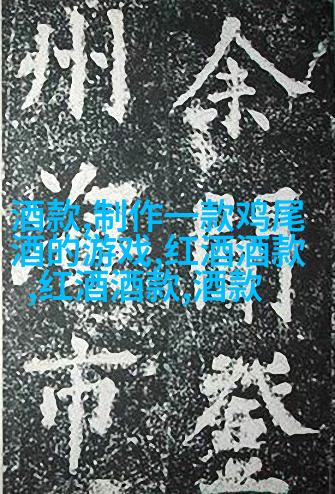 酒款,制作一款鸡尾
酒的游戏,红酒酒款
,红酒酒款,酒款
余聞登
州海市